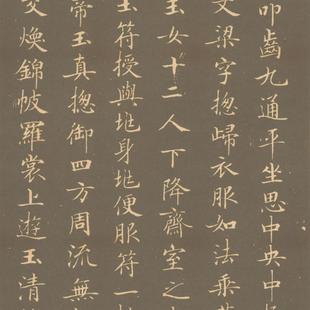 叩齒九通平坐思中央中
文梁字揔歸衣服如法乘
玉女十二人下降齋室之
玉符授與兆身兆便服符一
帝玉真揔御四方周流無
交煥錦帔羅裳上遊玉清